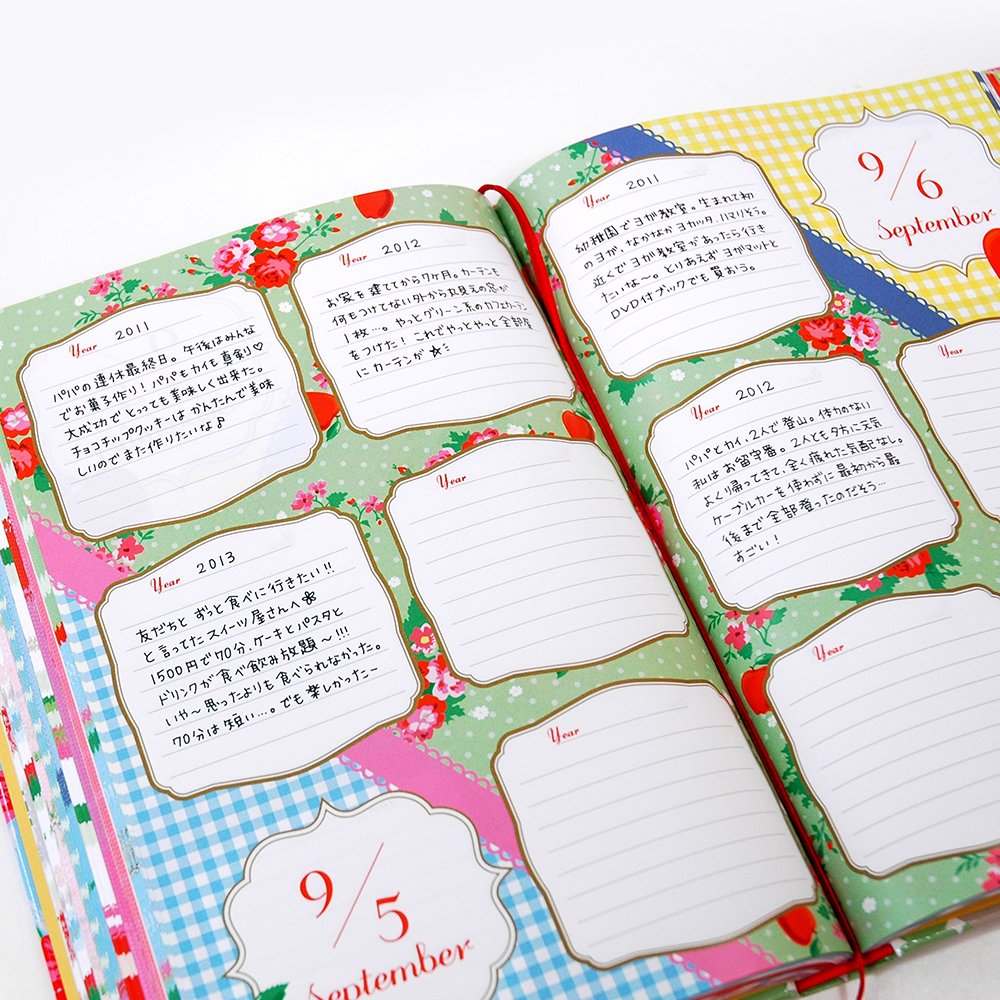 Year 2011
パパの連休最終日。午後はみんな
でお菓子作り！パパもカイも真剣♡
大成功でとっても美味しく出来た。
チョコチップクッキーはかんたんで美味
しいのでまた作りたいな♪
Year 2012
お家を建ててから7ヶ月。カーテンも
何もつけてない外から丸見えの窓が
1枚…。やっとグリーン系のカフェカーテン
をつけた！これでやっとやっと全部屋
にカーテンが☆ミ
Year 2013
友だちと ずっと食べに行きたい!!
と言ってたスイーツ屋さんへ
1500円で70分、ケーキとパスタと
ドリンクが食べ飲み放題〜!!!
いや〜思ったよりも食べられなかった。
70分は短い…。でも楽しかったー
Year
Year
9/5
September
9/6
September
Year 2011
幼稚園でヨガ教室。生まれて初
のヨガが、なかなかヨカッタ、ハマりそう。
近くでヨガ教室があったら行き
たいな〜。とりあえずヨガマットと
DVD付ブックでも買おう。
Year 2012
パパとカイ、2人で登山。体力のない
私はお留守番。2人とも夕方に元気
よく帰ってきて、全く疲れた気配なし。
ケーブルカーを使わずに最初から最
後まで全部登ったのだそう…
すごい！
Year
Year